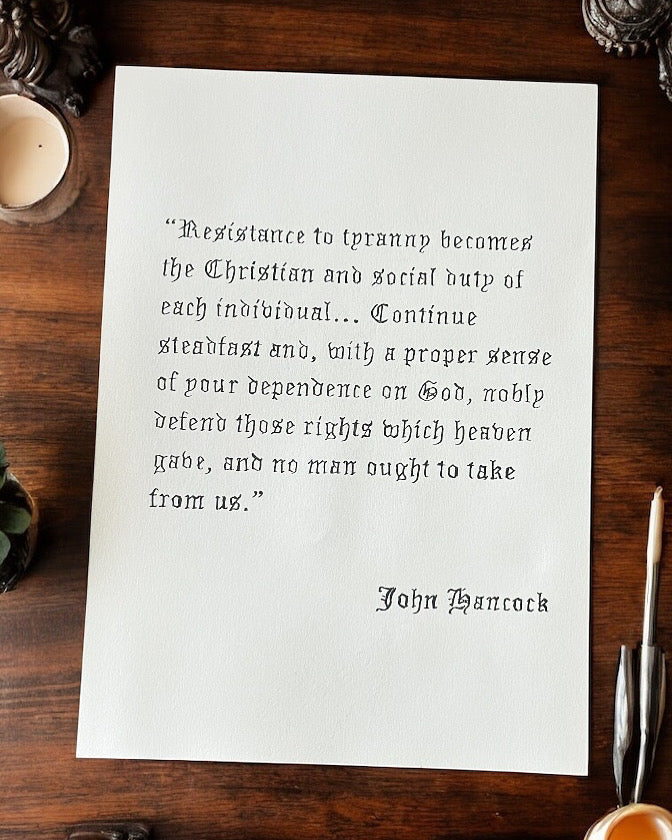 “Resistance to tyranny becomes
the Christian and social duty of
each individual... Continue
steadfast and, with a proper sense
of your dependence on God, nobly
defend those rights which heaven
gave, and no man ought to take
from us.”
John Hancock